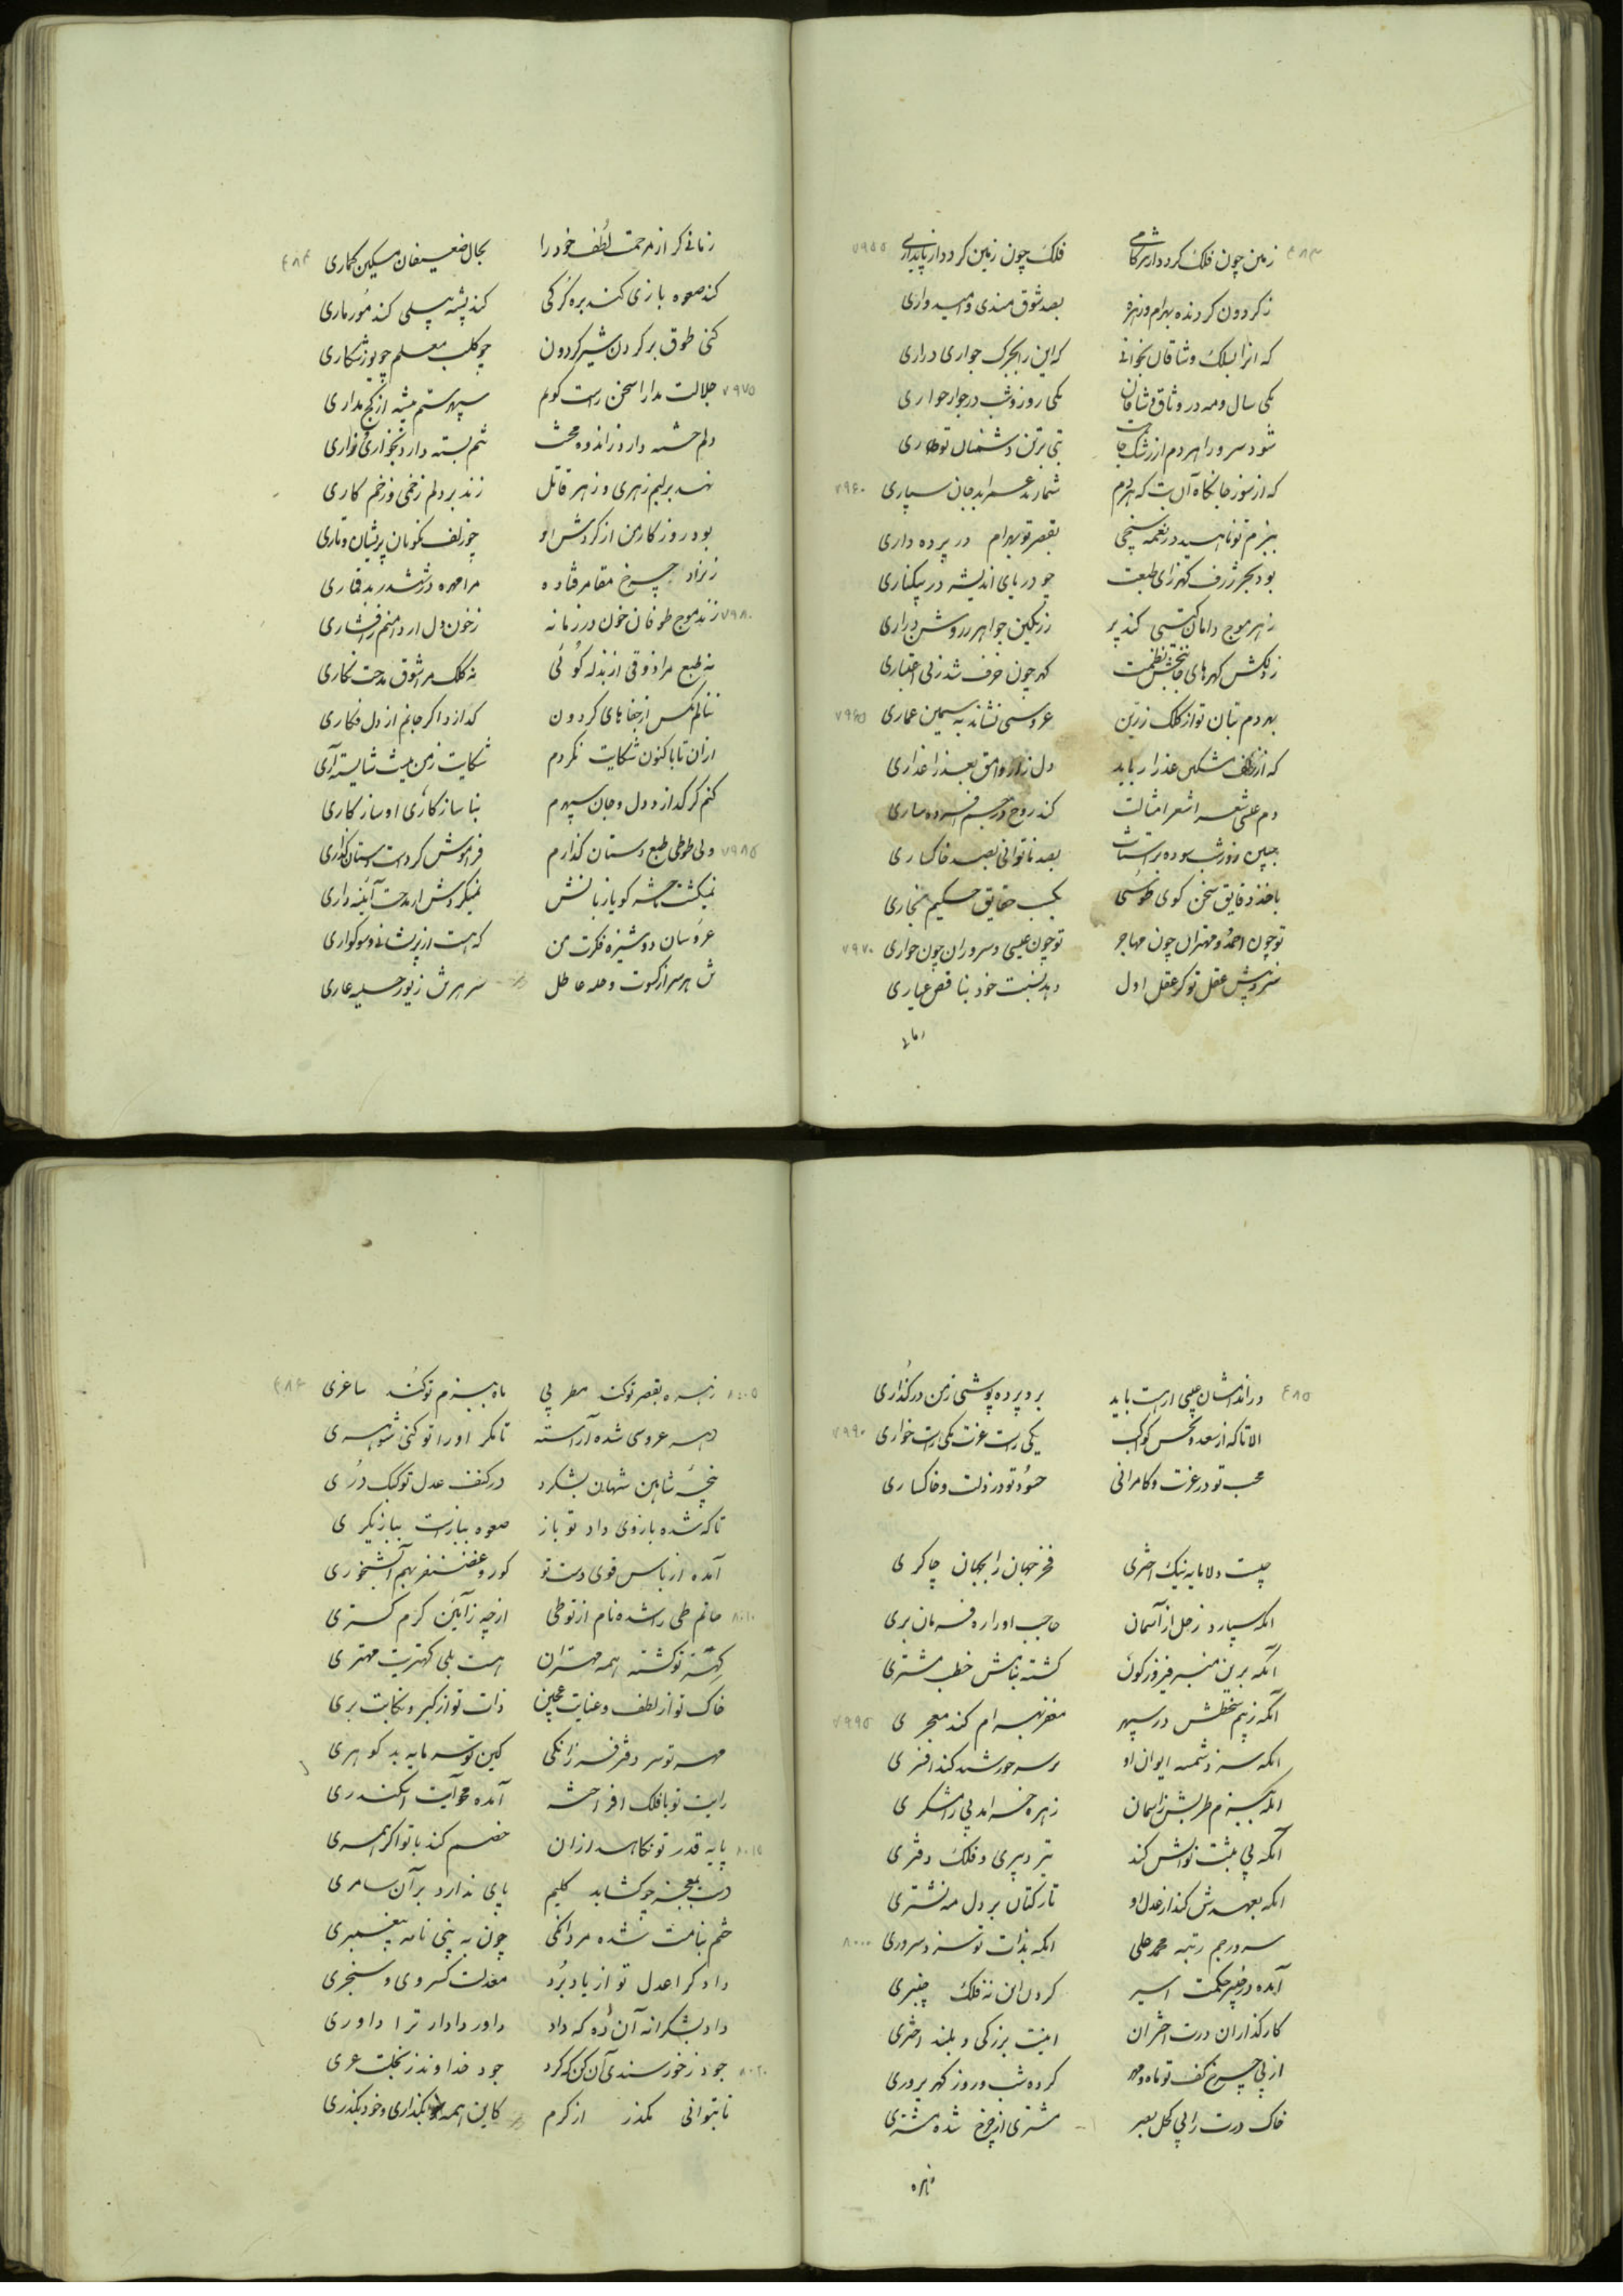 زمین چون فلک کردد از
فلک چون زمین کردد از پایداری
ز کردون کردنده بهرام و زهره
بصد شوق مندی و امیدواری
که آنرا بسلک وشاقان بخوانی
که این را بجرک جواری در آری
یکی سال و مه در وثاق وشاقان
یکی روز و شب در جوار جواری
شود سرور اهردم از رشک
تبی بر تن دشمنان تو طاری
که از سوز جانکاه آن تب که هردم
شمارند عمر ابد جان سپاری
ببزم تو ناهید در نغمه سنجی
بقصر تو بهرام در پرده داری
بود بحر ژرف کهرزای طبعت
چو دریای اندیشه در بیکناری
ز هر موج دامان کیتی کند پر
ز رنکین جواهر ز روشن دراری
ز رنکش کهرهای نظمت
کهر چون خزف شد ز بی اعتباری
بهر دم بنان تو از کلک زرین
عروسی نشاند به سیمین عماری
که از زلف مشکین عذار رباید
دل زار وامق بعذرا عذاری
دم عیسی شعر اشعر امثالت
کند روح در جسم افسرده ساری
جبین سوده بر آستانت
بصد ناتوانی بصد خاکساری
باخذ دقایق سخن کوی طوسی
بکسب حقایق حکیم بخاری
تو چون احمد و مهتران چون مهاجر
تو چون عیسی و سروران چون حواری
بر پیش عقل تو کر عقل اول
دهد نسبت خود بناقص عیاری
زمانی کر از مرحمت لطف خود را
بحال ضعیفان مسکین کماری
کند صعوه بازی کند بره کرکی
کند پشه پیلی کند مور ماری
کنی طوق بر کردن شیر کردون
چو کلب معلم چو یوز شکاری
جلالت مدارا سخن راست کویم
سپهر ستم پیشه از کج مداری
دلم خسته دارد ز اندوه و محنت
تنم بسته دارد بخواری و زاری
نهد بر لبم زهری و زهر قاتل
زند بر دلم زخمی و زخم کاری
بود روزکار من از کردش او
چو زلف نکویان پریشان و تاری
ز نراد چرخ مقامر فتاده
مرا مهره در ششدر بدقماری
زند موج طوفان خون در زمانه
ز خون دل ار دامنم را فشاری
نه طبع مرا ذوقی از بذله کوئی
نه کلک مرا شوق مدحت نکاری
ننالم بکس از جفاهای کردون
کدازد اکر جانم از دل فکاری
ازان تا باکنون شکایت نکردم
شکایت ز من نیست شایسته آری
کنم کر کدازد دل و جان سپهرم
بناسازکاری او سازکاری
ولی طوطی طبع دستان کذارم
فراموش کردست دستان کذاری
نمیکشت خسته کویا زبانش
نمیکردش ار مدحت آئینه داری
عروسان دوشیزه فکرت من
که هست از پریشانی و سوکواری
تن هر سر از کسوت و حله عاطل
سر هر تن ز زیور حلیه عاری
در اندامشان عیبی ار هست باید
برد پرده پوشی ز من در کذاری
الا تا که از سعد و نحس کواکب
یکی راست عزت یکی راست خواری
محب تو در عزت و کامرانی
حسود تو در ذلت و خاکساری
چیست دلا مایه نیک اختری
فخر جهان را بجهان چاکری
آنکه سپارد زحل از آسمان
حاجب او را ره فرمان بری
آنکه برین منبر فیروزکون
کشته بنامش خطب مشتری
آنکه ز بیم سخطش در سپهر
مغفر بهرام کند معجری
آنکه سزد شمسه ایوان او
بر سر خورشید کند افسری
آنکه ببزم طربش ز آسمان
زهره خرامد پی رامشکری
آنکه پی ثبت نوالش کند
تیر دبیری و فلک دفتری
آنکه بعهدش کند از عدل او
تار کتان بر دل مه نشتری
سرور جم رتبه محمد علی
آنکه بذات تو سزد سروری
آمده در چنبر حکمت اسیر
کردن این نه فلک چنبری
کارکذاران درت اختران
اینت بزرکی و بلند اختری
از پی چرخ کف تو ماه و مهر
کرده شب و روز کهرپروری
خاک درت را پی کحل بصر
مشتری از چرخ شده مشتری
زهره
زهره بقصر تو کند مطربی
ماه ببزم تو کند ساغری
دهر عروسی شده آراسته
تا مکر او را تو کنی شوهری
پنجه شاهین شهان بشکرد
در کنف عدل تو کبک دری
تا که شده بازوی داد تو باز
صعوه ببازست ببازیکری
آمده از باس قوی دست تو
کور و غضنفر بهم آبشخوری
حاتم طی را شده نام از تو طی
ازچه ز آئین کرم کستری
کهتر تو کشته همه مهتران
هست بلی کهتریت مهتری
خاک تو از لطف و عنایت عجین
ذات تو از کبر و نکایت بری
مهر تو سر دفتر فرزانکی
کین تو سرمایه بد کوهری
رایت تو با فلک افراخته
آمده محو آیت اسکندری
پایه قدر تو نکاهد ازان
خصم کند با تو اکر همسری
دست بمعجز چو کشاید کلیم
پای ندارد بر آن سامری
ختم بنامت شده مردانکی
چون به نبی نامه پیغمبری
دادکرا عدل تو از یاد برد
معدلت کسروی و سنجری
داد بشکرانه آن ده که داد
داور دادار ترا داوری
جود ز خورسندی آن کن که کرد
جود خداوند ز بخلت عری
تا بتوانی مکذر از کرم
کاین همه بکذاری و خود بکذری